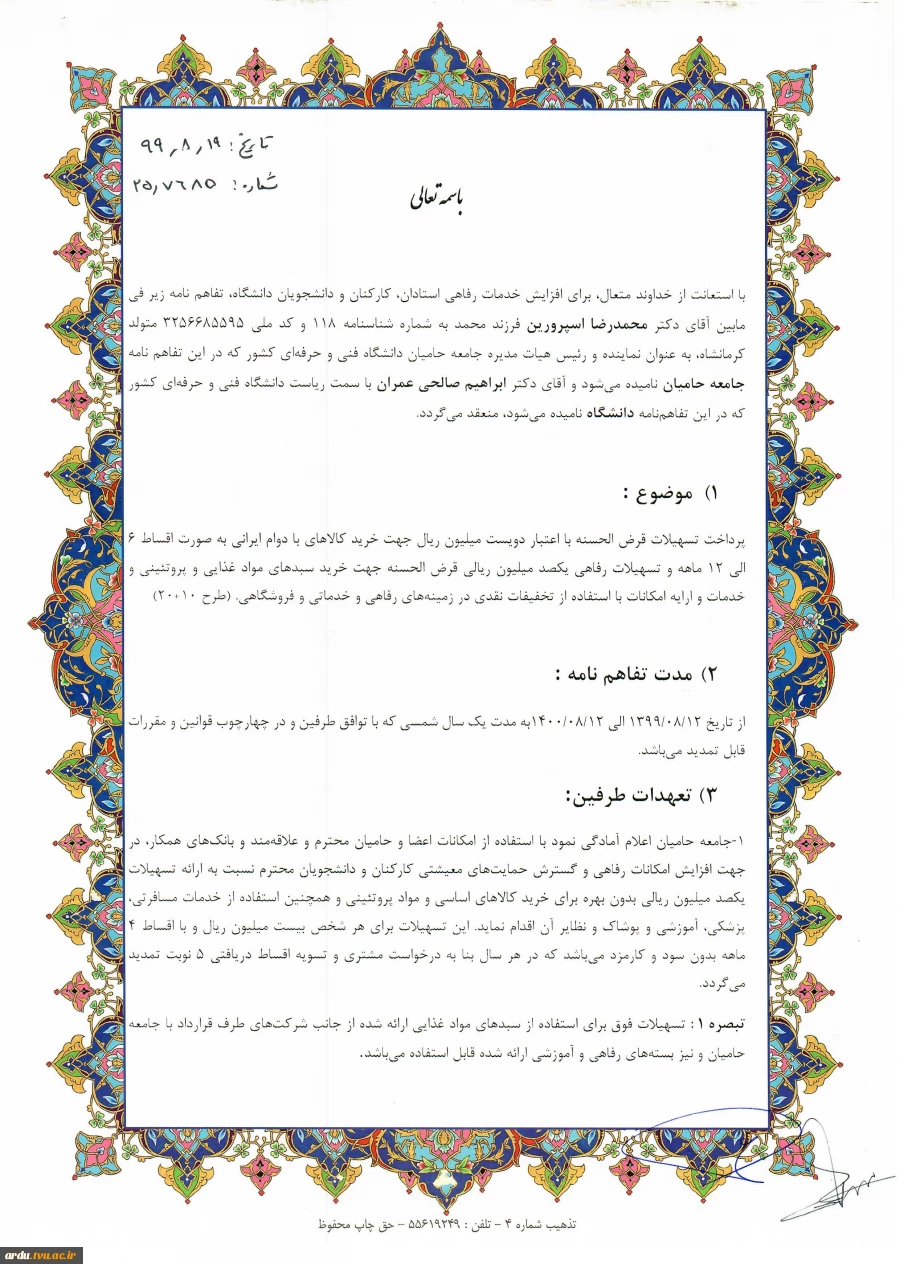 تاریخ: ۹۹٫۸٫۱۹
شماره: ۲۵٫۷٦۸۵
باسمه تعالی
با استعانت از خداوند متعال، برای افزایش خدمات رفاهی استادان، کارکنان و دانشجویان دانشگاه، تفاهم نامه زیر فی
مابین آقای دکتر محمدرضا اسپرورین فرزند محمد به شماره شناسنامه ۱۱۸ و کد ملی ۳۲۵۶۶۸۵۵۹۵ متولد
کرمانشاه، به عنوان نماینده و رئیس هیات مدیره جامعه حامیان دانشگاه فنی و حرفه‌ای کشور که در این تفاهم نامه
جامعه حامیان نامیده می‌شود و آقای دکتر ابراهیم صالحی عمران با سمت ریاست دانشگاه فنی و حرفه‌ای کشور
که در این تفاهم‌نامه دانشگاه نامیده می‌شود، منعقد می‌گردد.
۱) موضوع :
پرداخت تسهیلات قرض الحسنه با اعتبار دویست میلیون ریال جهت خرید کالاهای با دوام ایرانی به صورت اقساط ۶
الی ۱۲ ماهه و تسهیلات رفاهی یکصد میلیون ریالی قرض الحسنه جهت خرید سبدهای مواد غذایی و پروتئینی و
خدمات و ارایه امکانات با استفاده از تخفیفات نقدی در زمینه‌های رفاهی و خدماتی و فروشگاهی. (طرح ۱۰+۲۰)
۲) مدت تفاهم نامه :
از تاریخ ۱۳۹۹/۰۸/۱۲ الی ۱۴۰۰/۰۸/۱۲به مدت یک سال شمسی که با توافق طرفین و در چهارچوب قوانین و مقررات
قابل تمدید می‌باشد.
۳) تعهدات طرفین:
۱-جامعه حامیان اعلام آمادگی نمود با استفاده از امکانات اعضا و حامیان محترم و علاقه‌مند و بانک‌های همکار، در
جهت افزایش امکانات رفاهی و گسترش حمایت‌های معیشتی کارکنان و دانشجویان محترم نسبت به ارائه تسهیلات
یکصد میلیون ریالی بدون بهره برای خرید کالاهای اساسی و مواد پروتئینی و همچنین استفاده از خدمات مسافرتی،
پزشکی، آموزشی و پوشاک و نظایر آن اقدام نماید. این تسهیلات برای هر شخص بیست میلیون ریال و با اقساط ۴
ماهه بدون سود و کارمزد می‌باشد که در هر سال بنا به درخواست مشتری و تسویه اقساط دریافتی ۵ نوبت تمدید
می‌گردد.
تبصره ۱: تسهیلات فوق برای استفاده از سبدهای مواد غذایی ارائه شده از جانب شرکت‌های طرف قرارداد با جامعه
حامیان و نیز بسته‌های رفاهی و آموزشی ارائه شده قابل استفاده می‌باشد.
تذهیب شماره ۴ – تلفن : ۵۵۶۱۹۲۴۹ – حق چاپ محفوظ
ardu.tvu.ac.ir